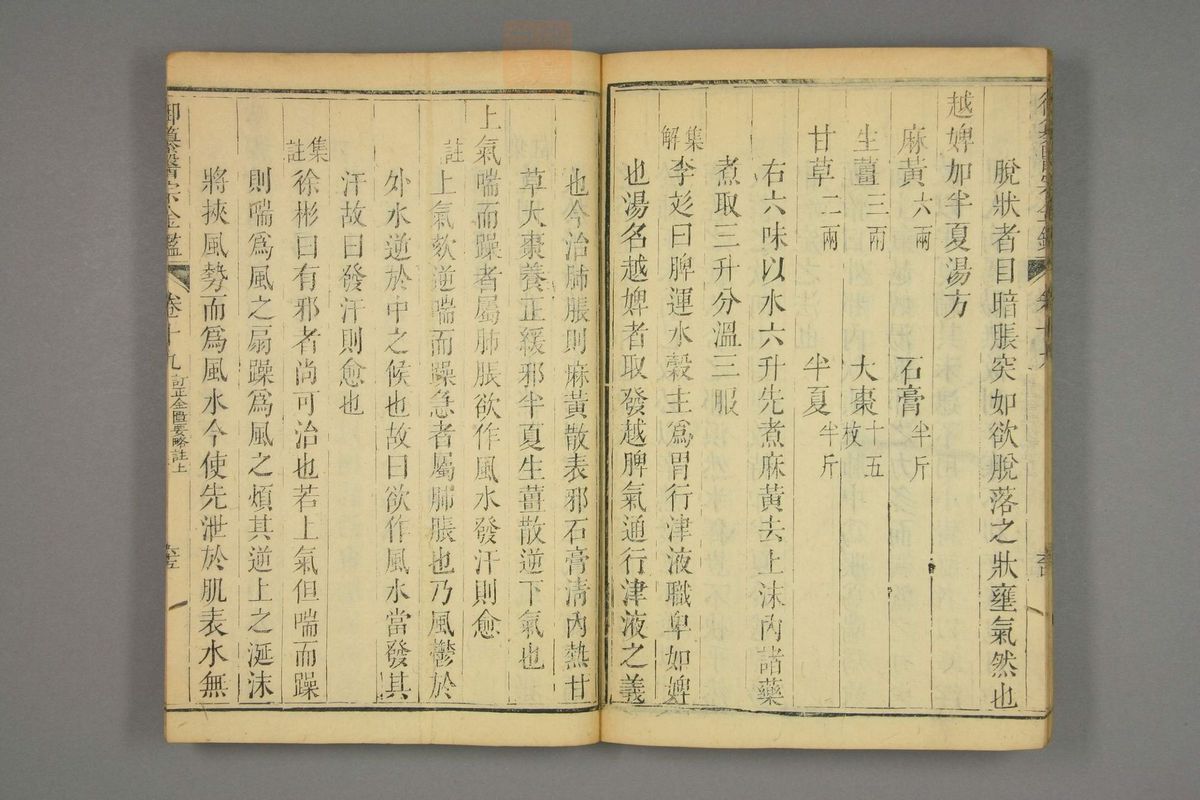 脫狀者目暗脹突如欲脫落之狀壅氣然也
越婢加半夏湯方
麻黃六兩 石膏半斤
生薑三兩 大棗十五枚
甘草二兩 半夏半斤
右六味以水六升先煮麻黃去上沫內諸藥
煮取三升分溫三服
集解李彣曰脾運水穀主爲胃行津液職卑如婢
也湯名越婢者取發越脾氣通行津液之義
也今治肺脹則麻黃散表邪石膏淸內熱甘
草大棗養正緩邪半夏生薑散逆下氣也
上氣喘而躁者屬肺脹欲作風水發汗則愈
註上氣欬逆喘而躁急者屬肺脹也乃風鬱於
外水逆於中之候也故曰欲作風水當發其
汗故曰發汗則愈也
集註徐彬曰有邪者尚可治也若上氣但喘而躁
則喘爲風之扇躁爲風之煩其逆上之涎沫
將挾風勢而爲風水今使先泄於肌表水無
御纂醫宗金鑑 卷十九 訂正金匱要略註上